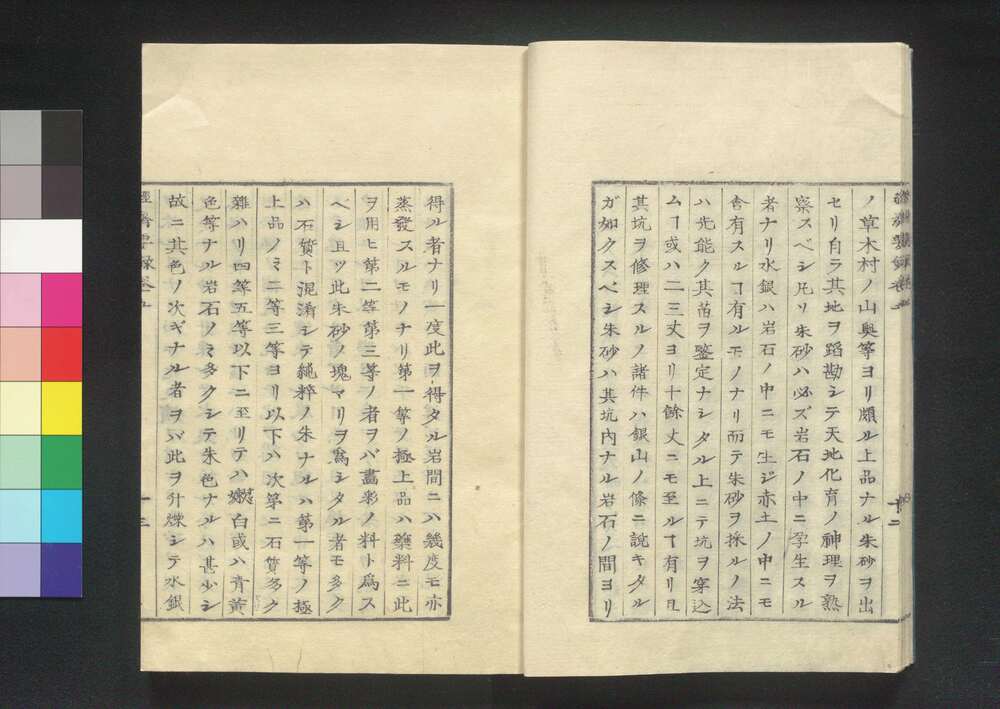 ノ草木村ノ山奥等ヨリ頗ル上品ナル朱砂ヲ出
セリ自ラ其地ヲ蹈勘シテ天地化育ノ神理ヲ熟
察スベシ凡リ朱砂ハ必ズ岩石ノ中ニ孕生スル
者ナリ水銀ハ岩石ノ中ニモ生ジ赤土ノ中ニモ
含有スルヿ有ルモノナリ而テ朱砂ヲ採ルノ法
ハ先能ク其苗ヲ鑒定ナシタル上ニテ坑ヲ穿込
ムヿ或ハ二三丈ヨリ十餘丈ニモ至ルヿ有リ且
其坑ヲ修理スルノ諸件ハ銀山ノ條ニ說キタル
ガ如クスベシ朱砂ハ其坑內ナル岩石ノ間ヨリ
十二
得ル者ナリ一度此ヲ得タル岩間ニハ幾度モ亦
蒸發スルモノナリ第一等ノ極上品ハ藥料ニ此
ヲ用ヒ第二等第三等ノ者ヲバ畫彩ノ料ト爲ス
ベシ且ツ此朱砂ノ塊マリヲ爲シタル者モ多ク
ハ石質ト混淆シテ純粹ノ朱ナルハ第一等ノ極
上品ノミ二等三等ヨリ以下ハ次第ニ石質多ク
雜ハリ四等五等以下ニ至リテハ嫩白或ハ青黃
色等ナル岩石ノミ多クシテ朱色ナルハ甚少シ
故ニ其色ノ次ギナル者ヲバ此ヲ升煉シテ水銀
十三